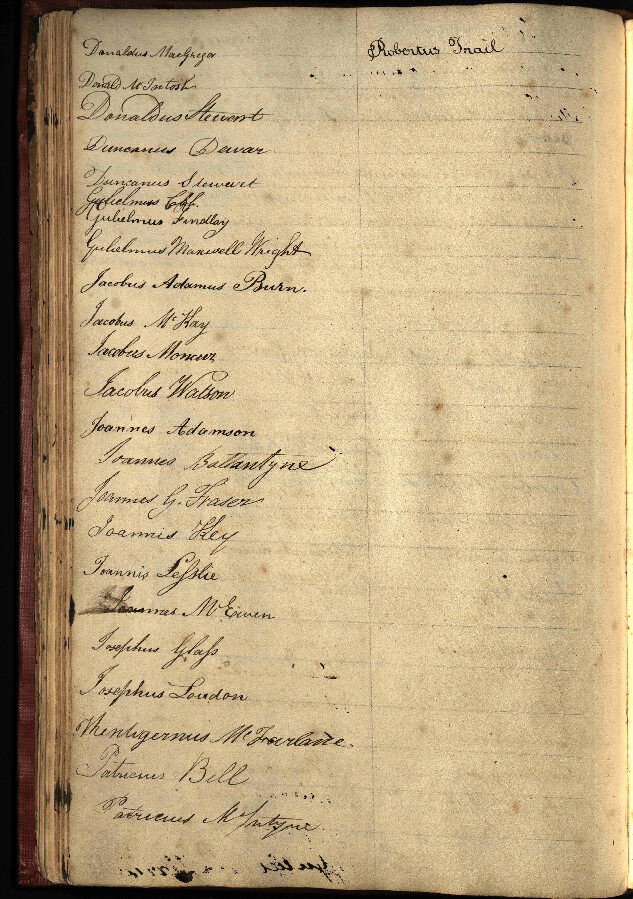 Donaldus MacGregor
Donald McIntosh
Donaldus Stewart
Duncanus Dewar
Duncanus Stewart
Gulielmus
Gulielmus Findlay
Gulielmus Maxwell Wright
Jacobus Adamus Burn.
Jacobus McKay
Jacobus Moncur
Jacobus Watson
Joannes Adamson
Joannes Ballantyne
Joannes G. Fraser
Joannis Key
Joannis Lesslie
Joannes McEwen
Josephus Glass
Josephus Loudon
McFarlane.
Patricius Bell
Patricius McIntyre
Robertus Trail